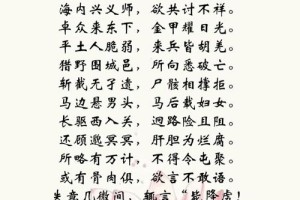 海内兴义师，欲共讨不祥。
卓众来东下，金甲耀日光。
平土人脆弱，来兵皆胡羌。
猎野围城邑，所向悉破亡。
斩截无孑遗，尸骸相撑拒。
马边悬男头，马后载妇女。
长驱西入关，迥路险且阻。
还顾邈冥冥，肝胆为烂腐。
所略有万计，不得令屯聚。
或有骨肉俱，欲言不敢语。
失意几微间，辄言“毙降虏！